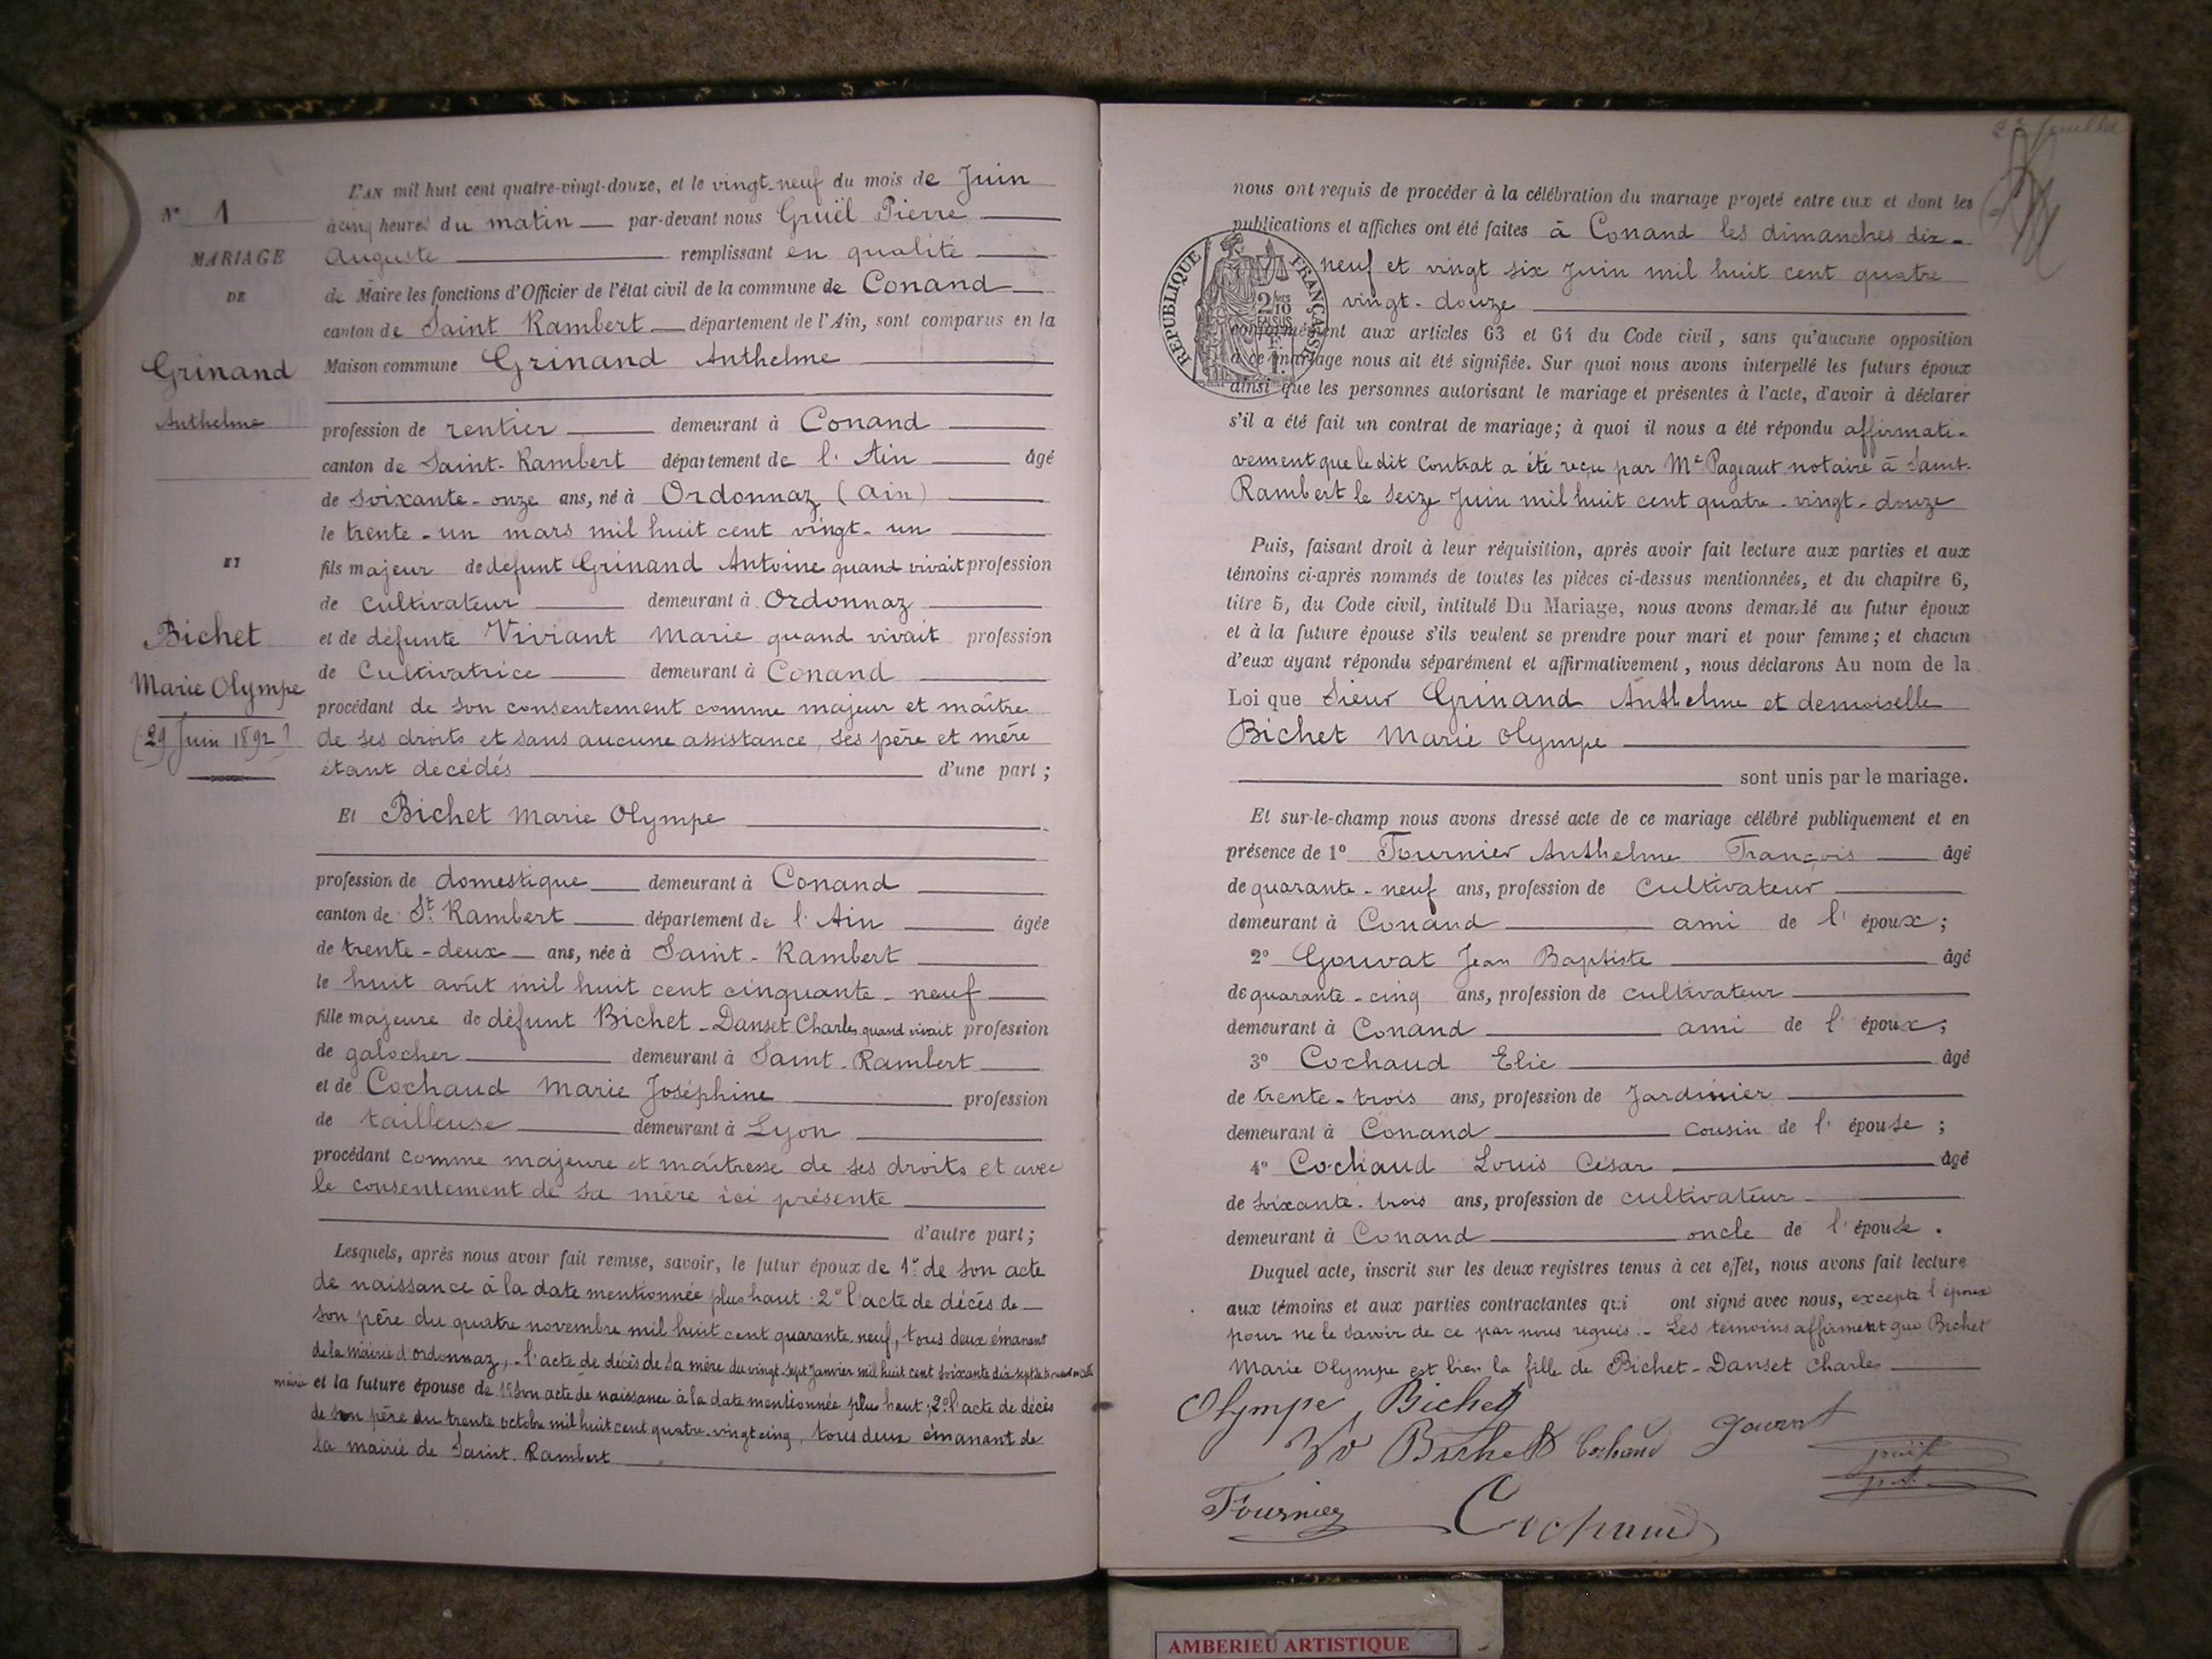 N° 1
MARIAGE
DE
Grinand
Anthelme
ET
Bichet
Marie Olympe
(29 Juin 1892)
L'AN mil huit cent quatre-vingt-douze, et le vingt-neuf du mois de Juin
à cinq heures du matin par-devant nous Gruël Pierre
Auguste remplissant en qualité
de Maire les fonctions d'Officier de l'état civil de la commune de Conand
canton de Saint Rambert département de l'Ain, sont comparus en la
Maison commune Grinand Anthelme
profession de rentier demeurant à Conand
canton de Saint-Rambert département de l'Ain âgé
de soixante-onze ans, né à Ordonnaz (Ain)
le trente-un mars mil huit cent vingt-un
fils majeur de défunt Grinand Antoine quand vivait profession
de cultivateur demeurant à Ordonnaz
et de défunte Viviant Marie quand vivait profession
de Cultivatrice demeurant à Conand
procédant de son consentement comme majeur et maître
de ses droits et sans aucune assistance, ses père et mère
étant decédés d'une part;
Et Bichet Marie Olympe
profession de domestique demeurant à Conand
canton de St. Rambert département de l'Ain âgée
de trente-deux ans, née à Saint-Rambert
le huit août mil huit cent cinquante-neuf
fille majeure de défunt Bichet-Danset Charles quand vivait profession
de galocher demeurant à Saint-Rambert
et de Cochaud Marie Joséphine profession
de tailleuse demeurant à Lyon
procédant comme majeure et maîtresse de ses droits et avec
le consentement de sa mère ici présente
d'autre part;
Lesquels, après nous avoir fait remise, savoir, le futur époux de 1° de son acte
de naissance à la date mentionnée plus haut : 2° l'acte de décès de
son père du quatre novembre mil huit cent quarante neuf, tous deux émanent
de la mairie d'ordonnaz, - l'acte de décès de sa mère du vingt-sept Janvier mil huit cent soixante dix sept
mairie et la future épouse de 1° son acte de naissance à la date mentionnée plus haut ; 2° l'acte de décès
de son père du trente octobre mil huit cent quatre-vingt cinq, tous deux émanant de
la mairie de Saint-Rambert
2e feuillet
nous ont requis de procéder à la célébration du mariage projeté entre eux et dont les
publications et affiches ont été faites à Conand les dimanches dix-
neuf et vingt six Juin mil huit cent quatre
vingt-douze
REPUBLIQUE FRANÇAISE
conformément aux articles 63 et 64 du Code civil, sans qu'aucune opposition
à ce mariage nous ait été signifiée. Sur quoi nous avons interpellé les futurs époux
ainsi que les personnes autorisant le mariage et présentes à l'acte, d'avoir à déclarer
s'il a été fait un contrat de mariage; à quoi il nous a été répondu affirmati-
vement que le dit Contrat a été reçu par Me Pageaut notaire à Saint-
Rambert le Seize Juin mil huit cent quatre-vingt-douze
Puis, faisant droit à leur réquisition, après avoir fait lecture aux parties et aux
témoins ci-après nommés de toutes les pièces ci-dessus mentionnées, et du chapitre 6,
titre 5, du Code civil, intitulé Du Mariage, nous avons demandé au futur époux
et à la future épouse s'ils veulent se prendre pour mari et pour femme; et chacun
d'eux ayant répondu séparément et affirmativement, nous déclarons Au nom de la
Loi que Sieur Grinand Anthelme et demoiselle
Bichet Marie Olympe
sont unis par le mariage.
Et sur-le-champ nous avons dressé acte de ce mariage célébré publiquement et en
présence de 1° Fournier Anthelme François âgé
de quarante-neuf ans, profession de Cultivateur
demeurant à Conand ami de l'époux;
2° Gouvat Jean Baptiste âgé
de quarante-cinq ans, profession de cultivateur
demeurant à Conand ami de l'époux;
3° Cochaud Elie âgé
de trente-trois ans, profession de Jardinier
demeurant à Conand cousin de l'épouse;
4° Cochaud Louis César âgé
de soixante-trois ans, profession de cultivateur
demeurant à Conand oncle de l'épouse.
Duquel acte, inscrit sur les deux registres tenus à cet effet, nous avons fait lecture
aux témoins et aux parties contractantes qui ont signé avec nous, excepté l'époux
pour ne le savoir de ce par nous requis. - Les témoins affirment que Bichet
Marie Olympe est bien la fille de Bichet-Danset Charles
Olympe Bichet
Vve Bichet Cochaud Gouvat
Fournier Cochaud
AMBERIEU ARTISTIQUE